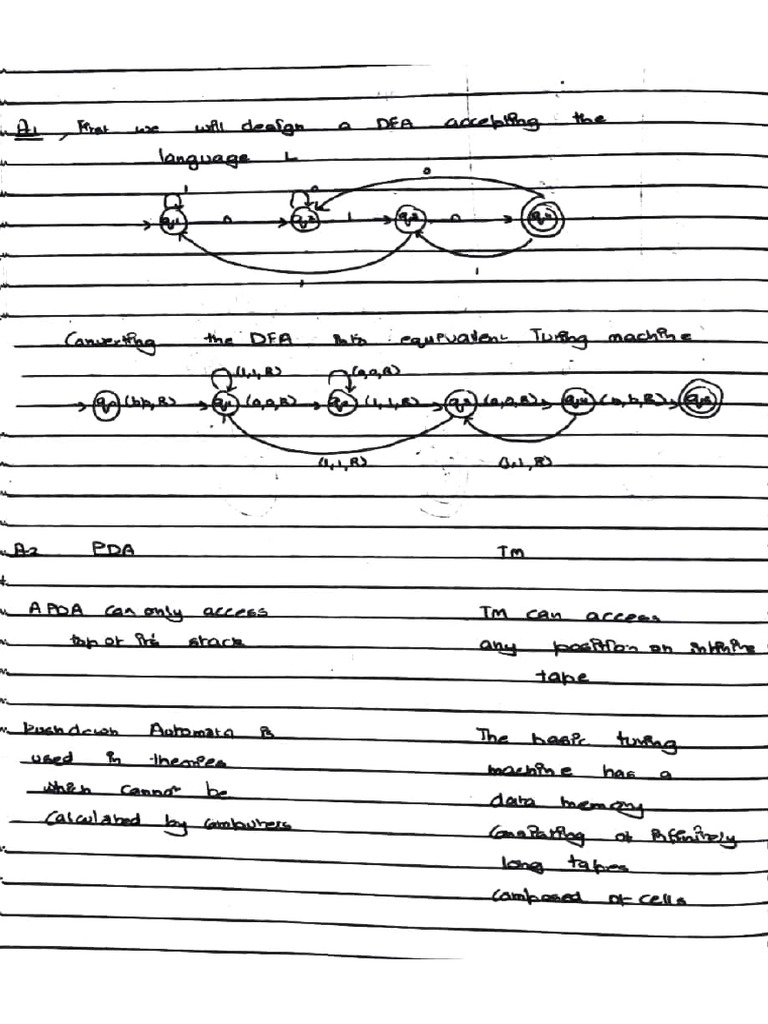 A1, First we will design a DFA accepting the
language L
0
1 0
q1 0 q2 1 q3 0 q4
1
1
Converting the DFA into equivalent Turing machine
(1,1,R) (0,0,R)
q0 (b,b,R) q1 (0,0,R) q2 (1,1,R) q3 (0,0,R) q4 (b,b,R) q5
(1,1,R) (1,1,R)
A2 PDA TM
A PDA can only access TM can access
top of it's stack any position on infinite
tape
Pushdown Automata is The basic turing
used in theories machine has a
which cannot be data memory
calculated by computers consisting of infinitely
long tapes
composed of cells